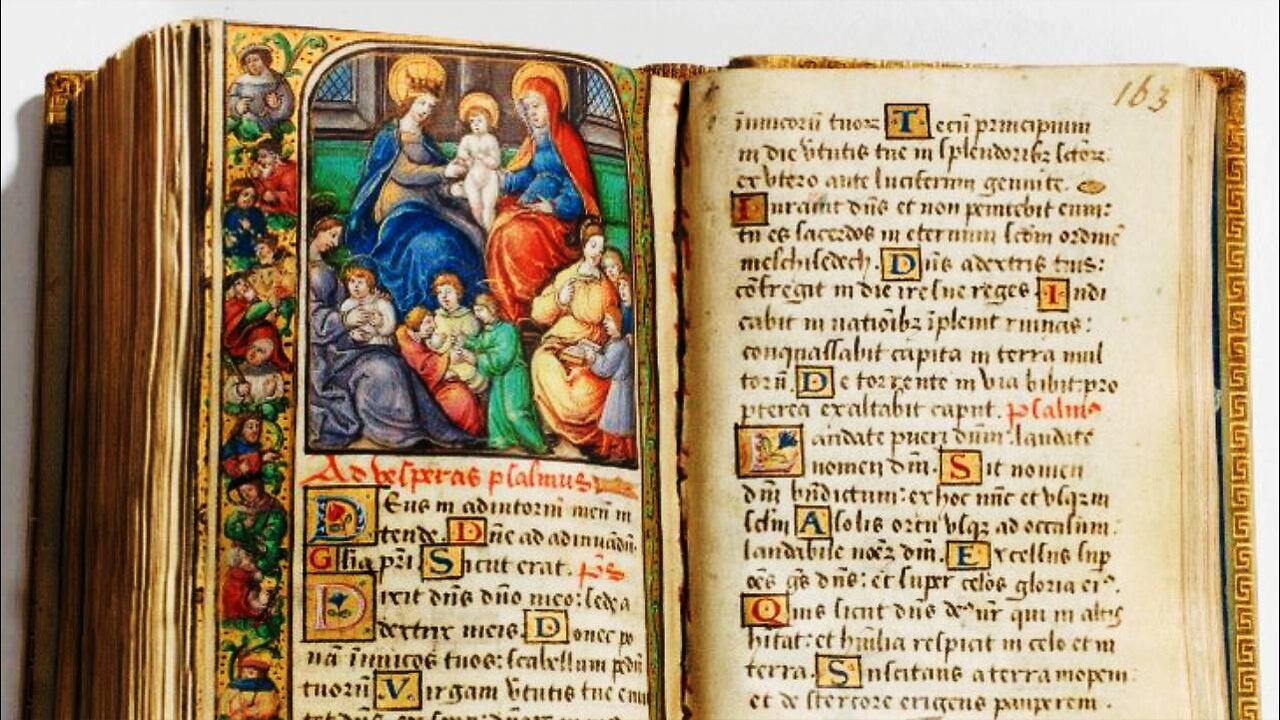 Ad vesperas psalmus
DEus in adiutoriū meū in
tende. Dn̄e ad adiuvādū.
Glīa pr̄i. Sicut erat. p̄s
Dixit dn̄s dn̄o meo: sede a
dextris meis. Donec po
nā īnimicos tuos: scabellum pedū
tuorū Virgam v̄tutis tue emi
163
īnimicorū tuoꝝ Tecū principium
in die v̄tutis tue in splendoribꝫ sctoꝝ:
ex vtero ante luciferum genui te.
Iurauit dn̄s et non penitebit eum:
tu es sacerdos in eternum scdm ordinē
melchisedech. Dn̄s a dextris tuis:
cōfregit in die ire sue reges. Indi
cabit in natiōibꝫ īplebit ruinas:
conquassabit capita in terra mul
torū. De torrente in via bibit: pro
pterea exaltabit caput. psalmus
Laudate pueri dn̄m: laudate
nomen dn̄i. Sit nomen
dn̄i bn̄dictum: ex hoc nūc et vsqꝫ in
sclm̄ A solis ortu vsqꝫ ad occasum:
laudabile nom̄ dn̄i. Excelsus sup
oēs gē̄s dn̄s: et super celos gloria eiꝰ.
Quis sicut dn̄s deꝰ nr̄ qui in altis
hītat: et hūilia respicit in celo et in
terra. Suscitans a terra inopem:
et de stercore erigens pauperem.